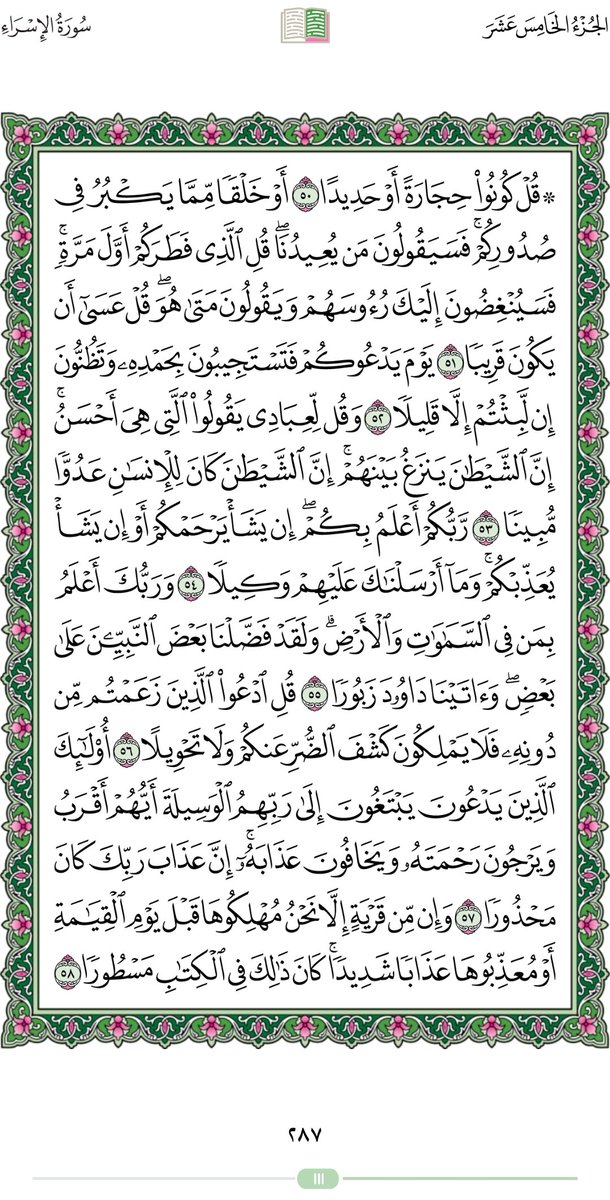 الجُزْءُ الخَامِسَ عَشَرَ
سُورَةُ الإِسْرَاءِ
۞ قُلۡ كُونُواْ حِجَارَةً أَوۡ حَدِيدًا ٥٠ أَوۡ خَلۡقٗا مِّمَّا يَكۡبُرُ فِي
صُدُورِكُمۡۚ فَسَيَقُولُونَ مَن يُعِيدُنَاۖ قُلِ ٱلَّذِي فَطَرَكُمۡ أَوَّلَ مَرَّةٖۚ
فَسَيُنۡغِضُونَ إِلَيۡكَ رُءُوسَهُمۡ وَيَقُولُونَ مَتَىٰ هُوَۖ قُلۡ عَسَىٰٓ أَن
يَكُونَ قَرِيبٗا ٥١ يَوۡمَ يَدۡعُوكُمۡ فَتَسۡتَجِيبُونَ بِحَمۡدِهِۦ وَتَظُنُّونَ
إِن لَّبِثۡتُمۡ إِلَّا قَلِيلٗا ٥٢ وَقُل لِّعِبَادِي يَقُولُواْ ٱلَّتِي هِيَ أَحۡسَنُۚ
إِنَّ ٱلشَّيۡطَٰنَ يَنزَغُ بَيۡنَهُمۡۚ إِنَّ ٱلشَّيۡطَٰنَ كَانَ لِلۡإِنسَٰنِ عَدُوّٗا
مُّبِينٗا ٥٣ رَّبُّكُمۡ أَعۡلَمُ بِكُمۡۖ إِن يَشَأۡ يَرۡحَمۡكُمۡ أَوۡ إِن يَشَأۡ
يُعَذِّبۡكُمۡۚ وَمَآ أَرۡسَلۡنَٰكَ عَلَيۡهِمۡ وَكِيلٗا ٥٤ وَرَبُّكَ أَعۡلَمُ
بِمَن فِي ٱلسَّمَٰوَٰتِ وَٱلۡأَرۡضِۗ وَلَقَدۡ فَضَّلۡنَا بَعۡضَ ٱلنَّبِيِّـۧنَ عَلَىٰ
بَعۡضٖۖ وَءَاتَيۡنَا دَاوُۥدَ زَبُورٗا ٥٥ قُلِ ٱدۡعُواْ ٱلَّذِينَ زَعَمۡتُم مِّن
دُونِهِۦ فَلَا يَمۡلِكُونَ كَشۡفَ ٱلضُّرِّ عَنكُمۡ وَلَا تَحۡوِيلًا ٥٦ أُوْلَٰٓئِكَ
ٱلَّذِينَ يَدۡعُونَ يَبۡتَغُونَ إِلَىٰ رَبِّهِمُ ٱلۡوَسِيلَةَ أَيُّهُمۡ أَقۡرَبُ
وَيَرۡجُونَ رَحۡمَتَهُۥ وَيَخَافُونَ عَذَابَهُۥٓۚ إِنَّ عَذَابَ رَبِّكَ كَانَ
مَحۡذُورٗا ٥٧ وَإِن مِّن قَرۡيَةٍ إِلَّا نَحۡنُ مُهۡلِكُوهَا قَبۡلَ يَوۡمِ ٱلۡقِيَٰمَةِ
أَوۡ مُعَذِّبُوهَا عَذَابٗا شَدِيدٗاۚ كَانَ ذَٰلِكَ فِي ٱلۡكِتَٰبِ مَسۡطُورٗا ٥٨
٢٨٧